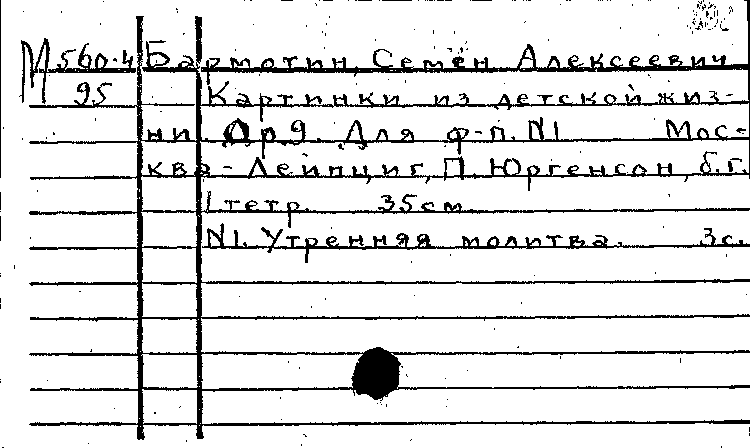 М 560-4 Бармотин, Семён Алексеевич
95 Картинки из детской жиз-
ни. Op. 9. Для ф-п. N1 Мос-
ква - Лейпциг, П. Юргенсон, б.г.
1 тетр. 35 см
N1. Утренняя молитва. 3 с.